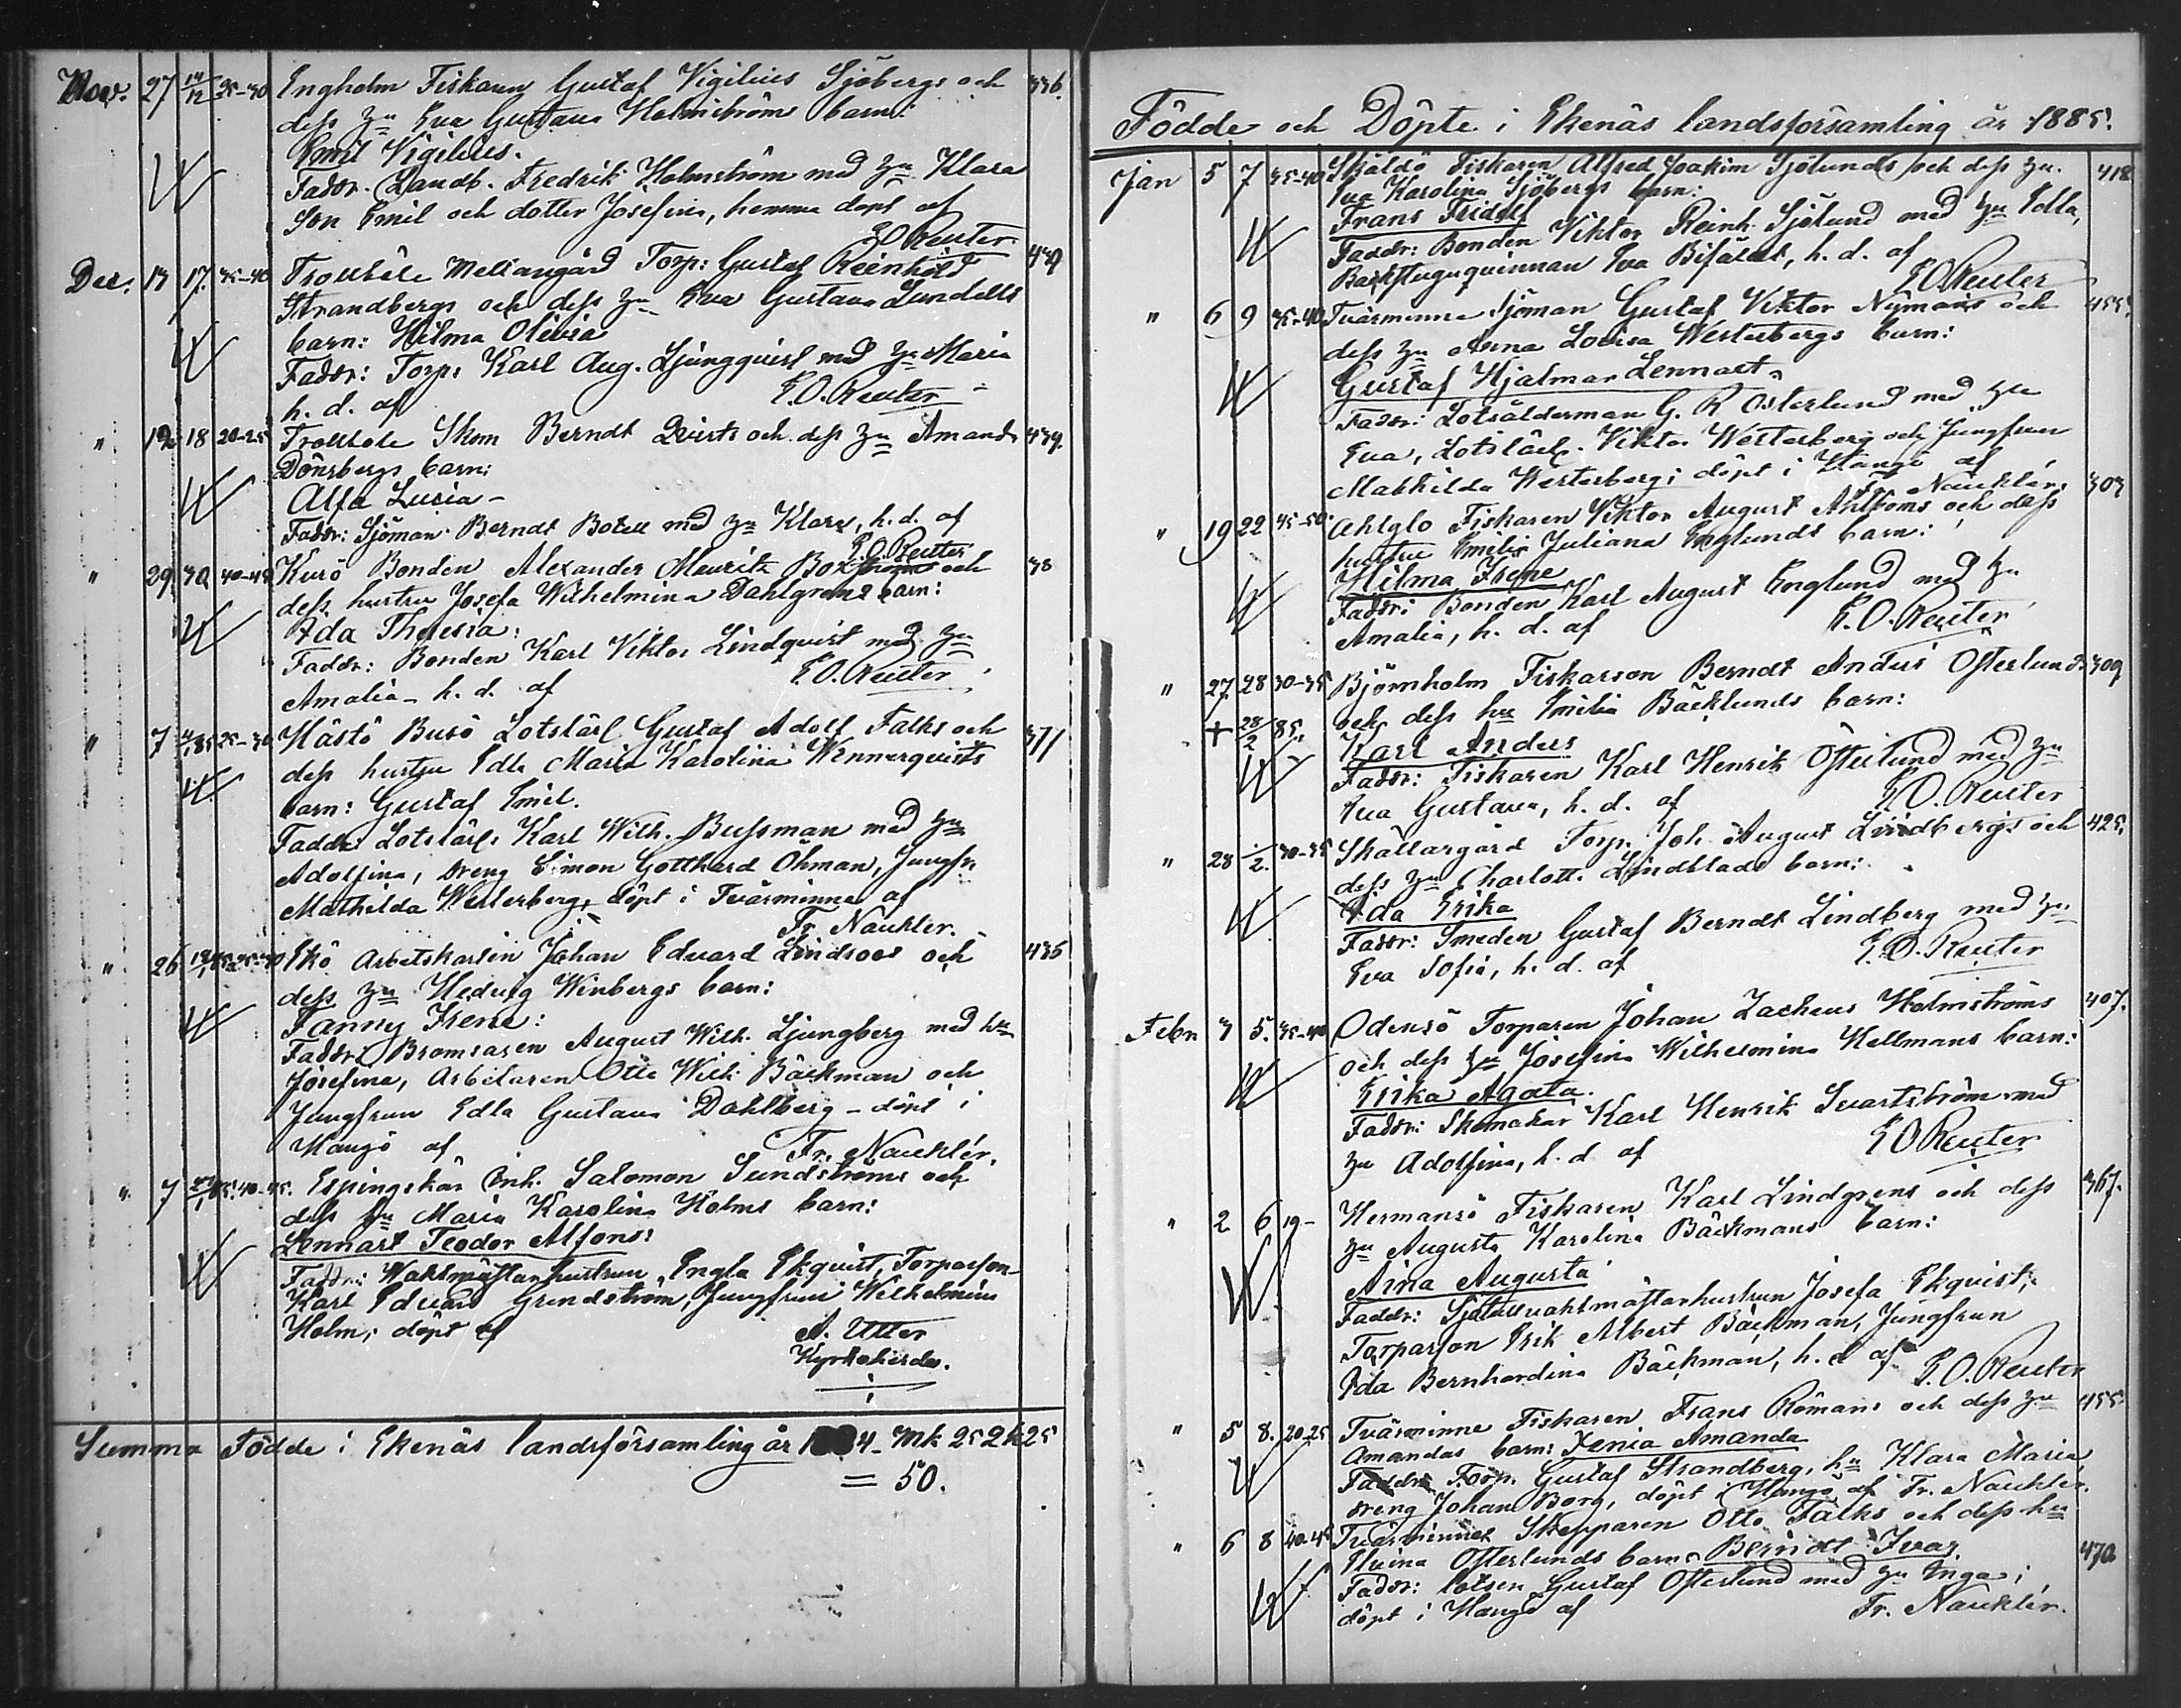 Nov. 27 14/12 25-30 Engholm Fiskarn Gustaf Vigilius Sjöbergs och 336.
dess hu Eva Gustava Holmströms barn:
Emil Vigilius.
Faddr. Landb. Fredrik Holmström med hu Klara
Son Emil och dotter Josefina, hemma döpt af
E O Reuter
Dec. 13 17. 35-40 Trollböle Mellangård Torp: Gustaf Reinhold 449
Strandbergs och dess hu Eva Gustava Lundells
barn: Hilma Olivia
Faddr: Torp: Karl Aug. Ljungqvist med hu Maria
h. d. af E. O. Reuter
" 12 18 20-25 Trollböle Skom Berndt Qvists och dess hu Amanda 439.
Dönsbergs barn:
Alfa Lucia -
Faddr: Sjöman Berndt Botell med hu Klara, h. d. af
E. O. Reuter
" 29. 30 40-45 Kurö Bonden Alexander Mauritz och 38
dess hustru Josefa Wilhelmina Dahlgrens barn:
Ida Theresia:
Faddr: Bonden Karl Viktor Lindqvist med hu
Amalia - h. d. af E. O. Reuter
" 7 85 25-30 Hästö Busö Lotslärl Gustaf Adolf Falks och 371
dess hustru Edla Maria Karolina Wennerqvists
barn: Gustaf Emil.
Faddr: Lotslärl. Karl Wilh. Bussman med hu
Adolfina, dreng Simon Gotthard Öhman, Jungfr
Mathilda Westerberg, döpt i Tvärminne af
Fr. Nauklér.
" 26 85 25-30 Ekö Arbetskarlen Johan Eduard Lindroos och 435
dess hu Hedvig Winbergs barn:
Fanny Irene:
Faddr: Bromsaren August Wilh. Ljungberg med hu
Josefina, Arbetaren Otto Wilh. Bäckman och
Jungfrun Edla Gustava Dahlberg - döpt i
Hangö af Fr. Nauklér.
" 7 85. 40-45. Espingskär Inh. Salomon Sundströms och
dess hu Maria Karolina Holms barn:
Lennart Teodor Alfons:
Faddr: Waktmästarhustrun Engla Ekqvist, Torparson
Karl Eduard Grundström, Jungfrun Wilhelmina
Holm, döpt af A. Utter
Kyrkoherde.
Summa Födde i Ekenäs landsförsamling år 1884 - Mk 25 Qk 25
= 50.
Födde och Döpte i Ekenäs landsförsamling år 1885.
Jan 5 7 35-40 Skåldö Fiskaren Alfred Joakim Sjölunds och dess hu 418
Eva Karolina Sjöbergs barn:
Frans Fridolf
Faddr: Bonden Viktor Reinh. Sjölund med hu Edla,
Backstuguqvinnan Eva Bifäldt, h. d. af
E. O. Reuter
" 6 9 35-40 Tvärminne Sjöman Gustaf Viktor Nymans och 455.
dess hu Anna Lovisa Westerbergs barn:
Gustaf Hjalmar Lennart.
Faddr: Lotsålderman G. R Österlund med hu
Eva, Lotslärl. Viktor Westerberg och Jungfrun
Mathilda Westerberg; döpt i Hangö af
Nauklér.
" 19 22 45-50. Ahlglo Fiskaren Viktor August Ahlboms och dess 303
hustru Emilia Juliana Englunds barn:
Hilma Irene
Faddr: Bonden Karl August Englund med hu
Amalia, h. d. af E. O. Reuter
" 27. 28 30-35 Björnholm Fiskarson Berndt Anders Österlunds 309
och dess hu Emilia Bäcklunds barn:
+ 28/2 85.
Karl Anders
Faddr: Fiskaren Karl Henrik Österlund med hu
Eva Gustava, h. d. af E O. Reuter
" 28 1/2. 30-35 Skällargård Torp. Joh. August Lindbergs och 425.
dess hu Charlotta Lindblads barn:
Ida Erika
Faddr: Smeden Gustaf Berndt Lindberg med hu
Eva Sofia, h. d. af E. O. Reuter
Febr 3 5. 35-40 Odensö Torparen Johan Zacheus Holmströms 407.
och dess hu Josefina Wilhelmina Hellmans barn:
Erika Agata.
Faddr: Skomakar Karl Henrik Svartström med
hu Adolfina, h. d af E O Reuter
" 2 6 19- Hermansö Fiskaren Karl Lindgrens och dess 367.
hu Augusta Karolina Bäckmans barn:
Aina Augusta
Faddr: Josefa Ekqvist,
Torparson Erik Albert Bäckman, Jungfrun
Ida Bernhardina Bäckman, h. d af E. O. Reuter
" 5 8. 20-25 Tvärminne Fiskaren Frans Römans och dess hu 455
Amandas barn: Xenia Amanda
Faddr: Torp. Gustaf Strandberg, hu Klara Maria,
dreng Johan Borg, döpt i Hangö af Fr. Nauklér.
" 6 8 40-45 Tvärminne Skepparen Otto Falks och dess hu
Elvina Österlunds barn: Berndt Ivar. 470
Faddr: lotsen Gustaf Österlund med hu Inga;
döpt i Hangö af Fr. Nauklér.